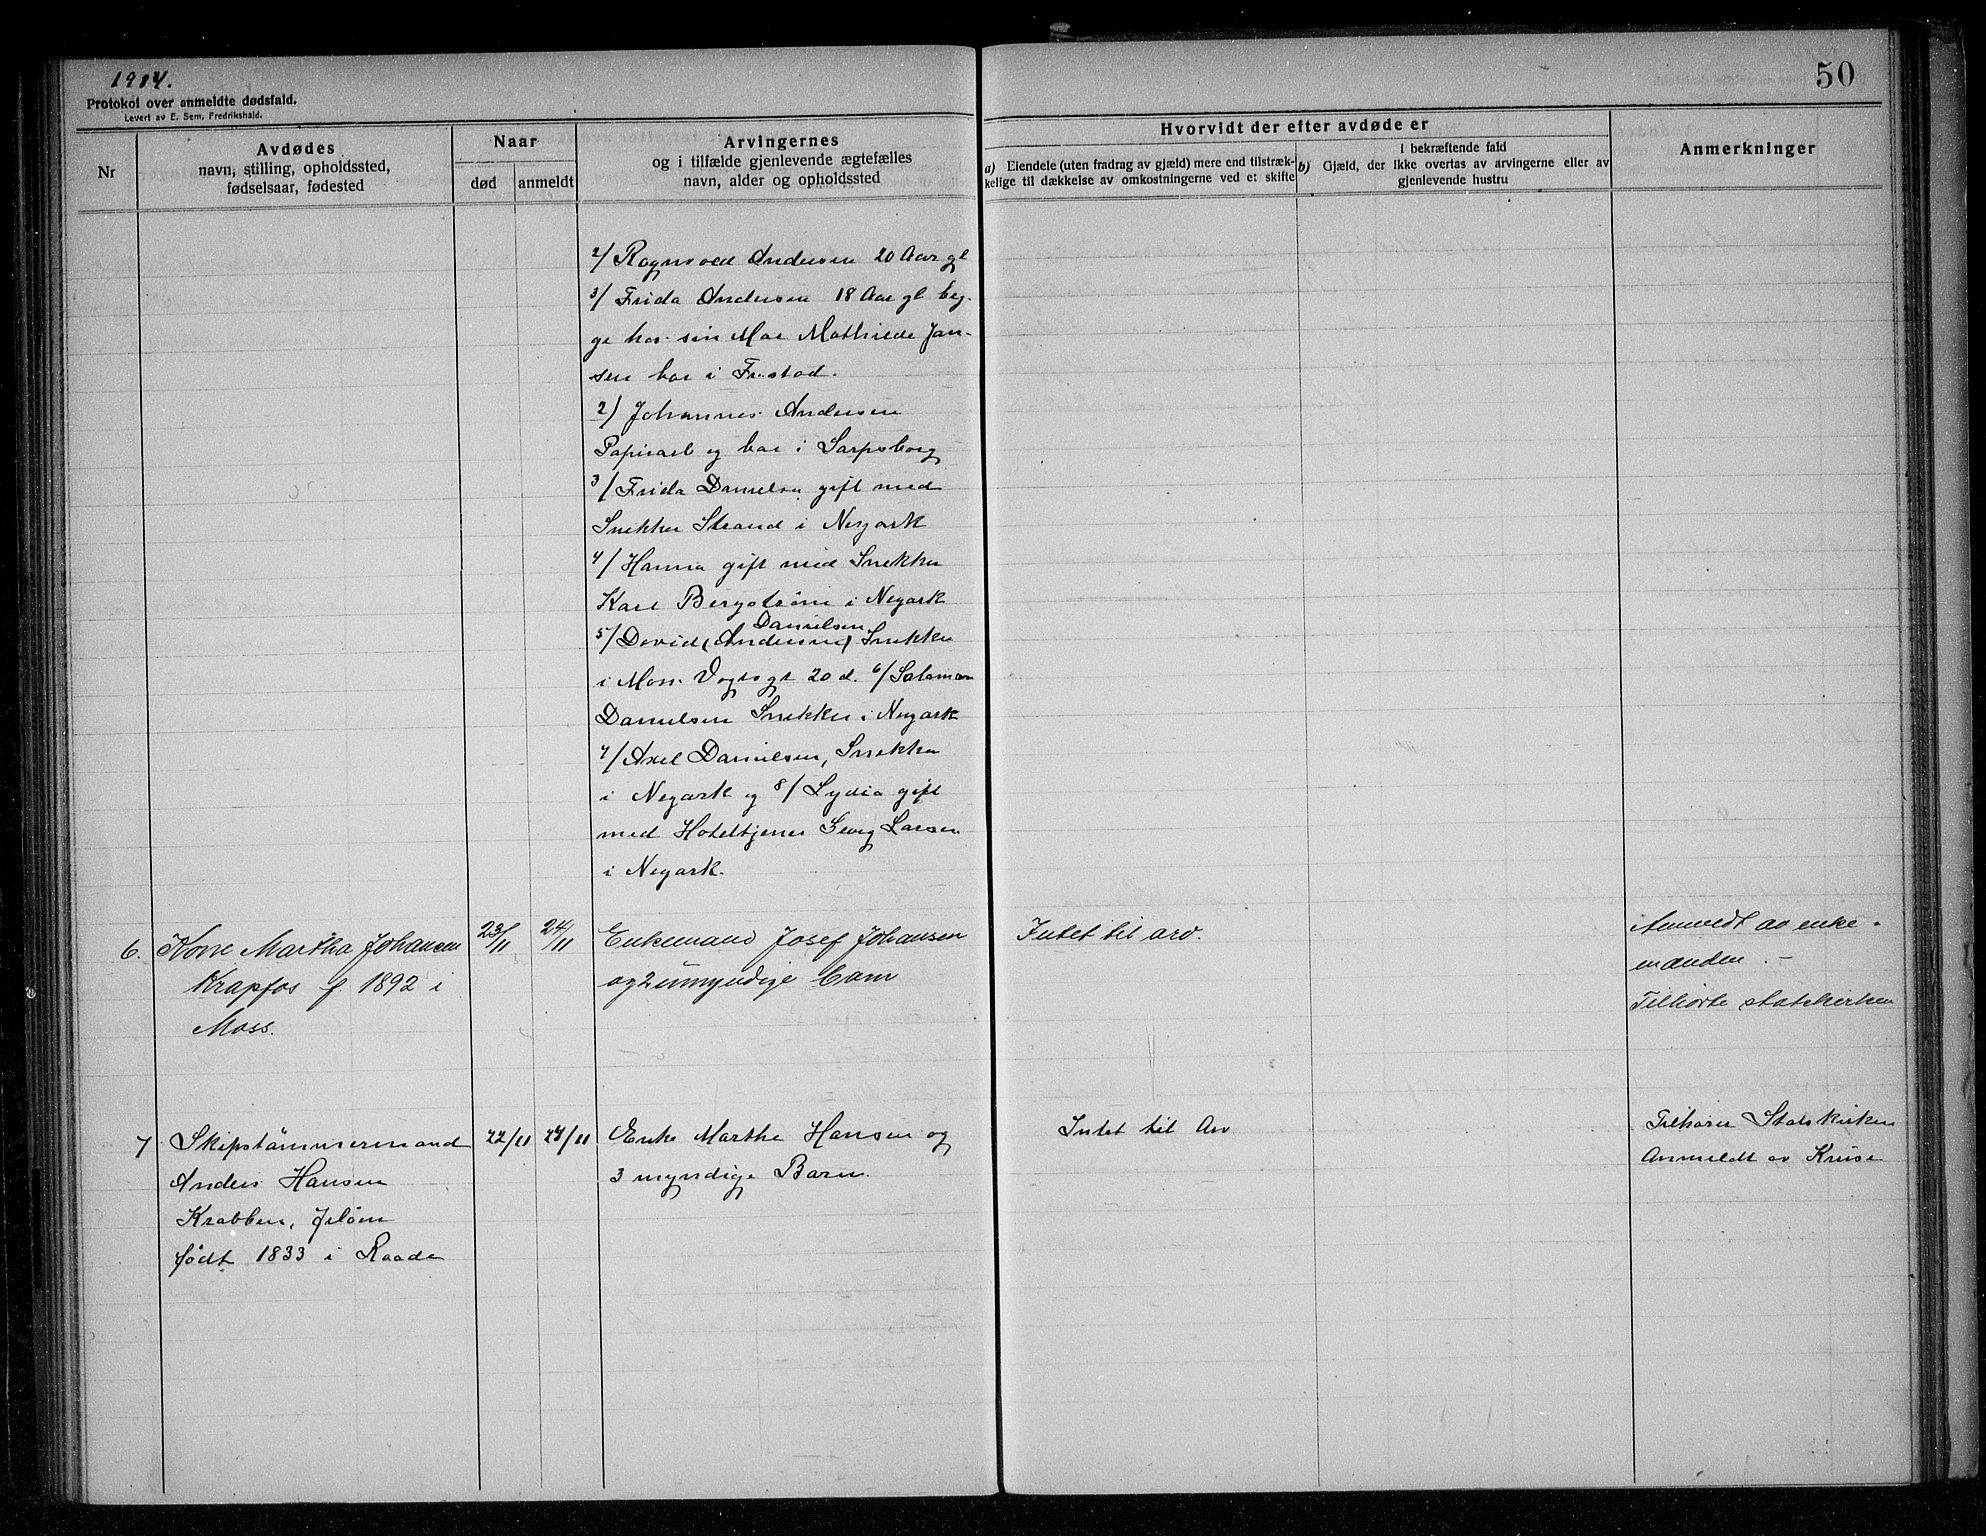 1914.
50
Protokol over anmeldte dødsfald.
Levert av E. Sem, Fredrikshald.
Nr
Avdødes
navn, stilling, opholdssted,
fødselsaar, fødested
Naar
død
anmeldt
Arvingernes
og i tilfælde gjenlevende ægtefælles
navn, alder og opholdssted
Hvorvidt der efter avdøde er
a) Eiendele (uten fradrag av gjæld) mere end tilstræk-
kelige til dækkelse av omkostningerne ved et skifte
i bekræftende fald
b) Gjæld, der ikke overtas av arvingerne eller av
gjenlevende hustru
Anmerkninger
2/ Ragnvald Andersen 20 Aar gl
3/ Frida Andersen 18 Aar gl beg-
ge hos sin Mor Mathilde Jan-
sen bor i Fr.stad.
2) Johannes Andersen
Papirarb og bor i Sarpsborg
3/ Frida Danielsen gift med
Snekker Strand i Neyork
4/ Hanna gift med Snekker
Karl Bergstrøm i Neyork
Danielsen
5/ David (Andersen) Snekker
i Moss Vogtsgt 20 d. 6/ Salamon
Danielsen Snekker i Neyork
7/ Axel Danielsen, Snekker
i Neyork og 8/ Lydia gift
med Hoteltjener Georg Larsen
i Neyork.
6. Kone Martha Johansen 23/11 24/11 Enkemand Josef Johansen Intet til arv. Anmeldt av enke-
Krapfos f. 1892 i og 2 umyndige barn manden. -
Moss. Tilhørte statskirken
7 Skipstømmermand 22/11 24/11 Enke Marthe Hansen og Intet til Arv Tilhører Statskirken
Anders Hansen 3 myndige Barn. Anmeldt av Kruse
Krabben, Jeløen
født 1833 i Raade